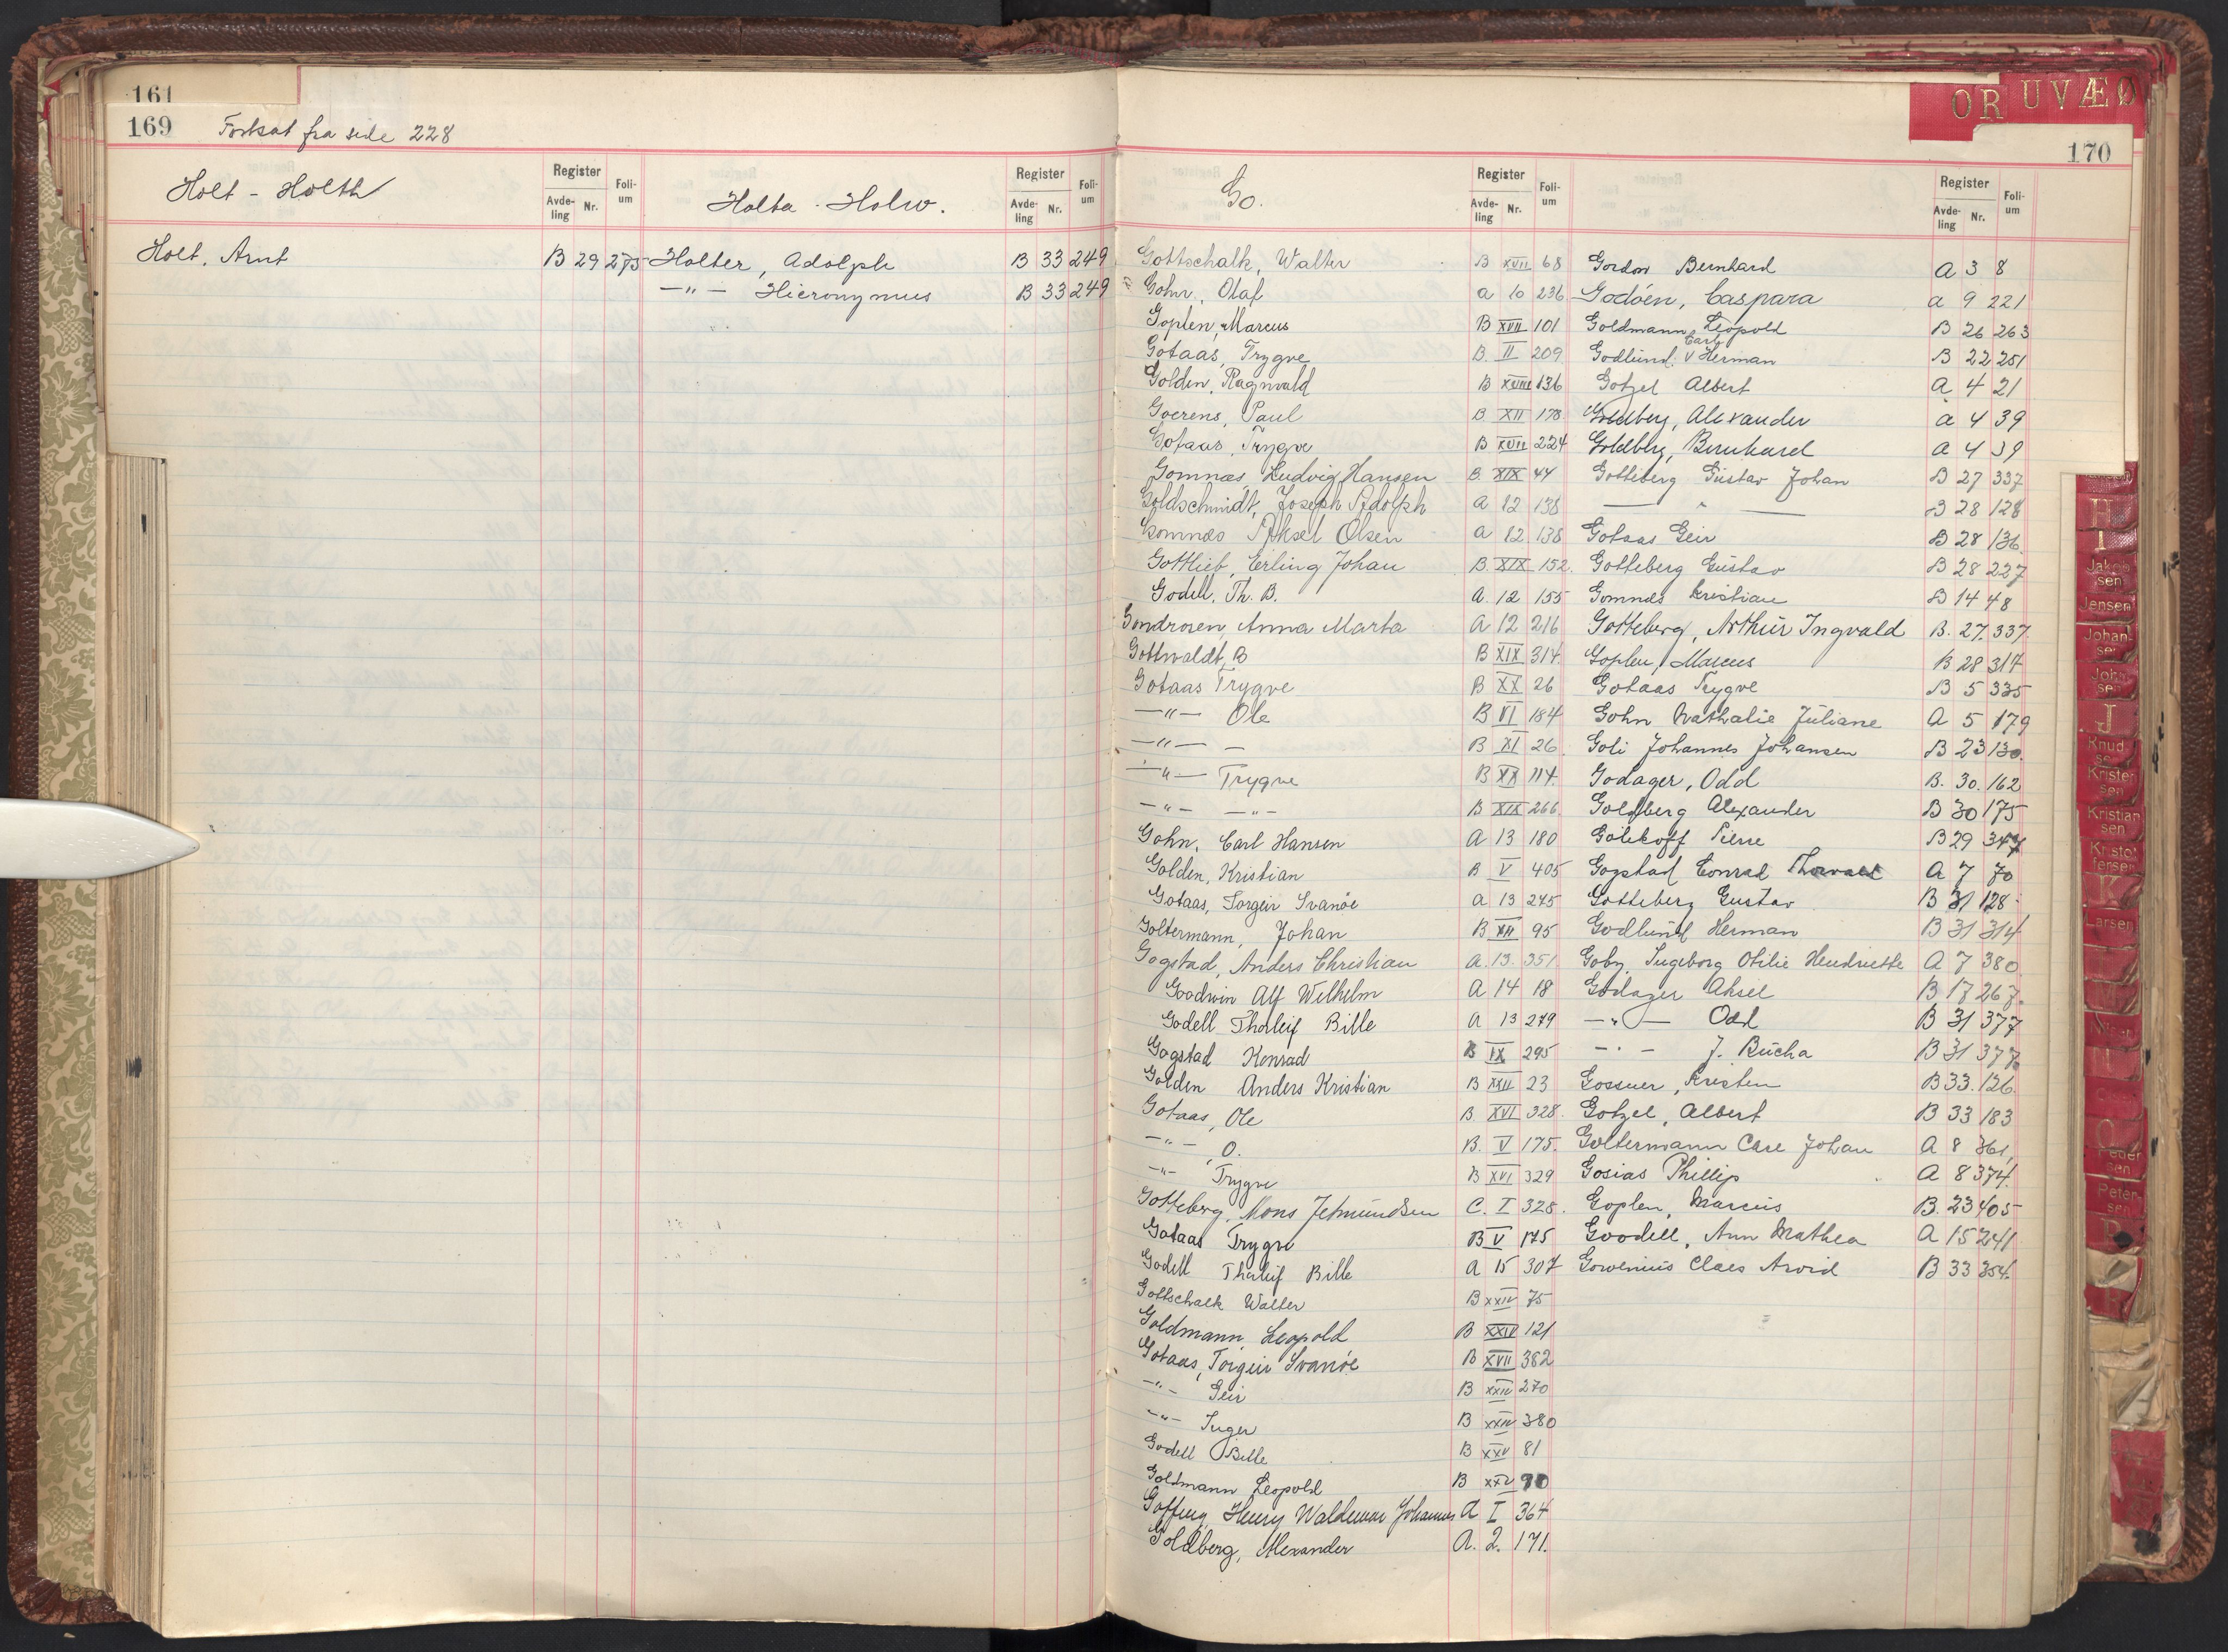 161
169 Fortsat fra side 228
Holt - Holth
Register Avdeling Nr. Folium
Holta - Holw.
Register Avdeling Nr. Folium
Holt, Arnt B 29 275
Holter, Adolph B 33 249
—"— Hieronymus B 33 249
OR UVÆØ
170
Go.
Register Avdeling Nr. Folium
Register Avdeling Nr. Folium
Gottschalk, Walter B XVII 68
Gohn, Olaf a 10 236
Goplen, Marcus B XVII 101
Gotaas, Trygve B. II 209
Golden, Ragnvald B XVIII 136
Goerens, Paul B. XII 178
Gotaas, Trygve B XVII 224
Gomnæs, Ludvig Hansen B. XIX 44
Goldschmidt, Joseph Adolph a 12 138
Gomnæs Aksel Olsen a 12 138
Gottlieb, Erling Johan B. XIX 152.
Godell, Th. B. a. 12 155
Gondrosen, Anna Marta a 12 216
Gottwaldt, B B XIX 314
Gotaas Trygve B XX 26
—"— Ole B VI 184
—"— — B XI 26
—"— Trygve B XX 114
—"— —"— B XIX 266
Gohn, Carl Hansen a 13 180
Golden, Kristian B V 405
Gotaas, Torgeir Svanöe a 13 245
Goltermann, Johan B XII 95
Gogstad, Anders Christian a. 13. 351
Goodwin Alf Wilhelm a 14 18
Godell Tharleif Bille a 13 279
Gogstad Konrad B IX 295
Golden Anders Kristian B XXII 23
Gotaas, Ole B. XVI 328
—"— O. B. V 175.
—"— Trygve B XVI 329
Gotteberg, Mons Jetmundsen C. I 328
Gotaas Trygve B V 175
Godell Tharleif Bille a 15 307
Gottschalk Walter B XXIV 75
Goldmann, Leopold B XXIV 121
Gotaas, Torgeir Svanöe B XVII 382
—"— Geir B XXIV 270
—"— Inger B XXIV 380
Godell Bille B XXV 81
Goldmann Leopold B XXV 90
Henry Waldemar Johannes A I 364
Goldberg, Alexander A. 2. 171.
Gordon Bernhard a 3 8
Godöen, Caspara a 9 221
Goldmann, Leopold B 26 263
Godlund, Carl Herman B 22 251
Gotzel Albert a 4 21
Goldberg, Alexander a 4 39
Goldberg, Bernhard a 4 39
Gotteberg Gustav Johan B 27 337
— " — B 28 128
Gotaas Geir B 28 136.
Gotteberg Gustav B 28 227
Gomnæs Kristian B 14 48
Gotteberg, Arthur Ingvald B. 27. 337.
Goplen, Marcus B 28 317
Gotaas Trygve B 5 335
Gohn Nathalie Juliane A 5 179
Goli Johannes Johansen B 23 130.
Godager, Odd B. 30. 162
Goldberg Alexander B 30 175
Pierre B 29 347
Gogstad Conrad Thorvald A 7 70
Gotteberg Gustav B 31 128.
Godlund Herman B 31 314
Goby, Ingeborg Otilie Hendriette A 7 380
Godager Aksel B 17 267.
—"— Odd B 31 377
—"— J. Bucha B 31 377.
Gossner, Kristen B 33. 126.
Gotzel, Albert B 33 183
Goltermann Carl Johan A 8 361
Gosias Phillip A 8 374.
Goplen, Marcus B. 23 405
Goodell, Ann Mathea A 15 241
Claes Arvid B 33 354.
H
I
Jakobsen
Jensen
Johansen
J
Knudsen
Kristensen
Kristiansen
Kristoffersen
K
Larsen
Pedersen
Petersen
P